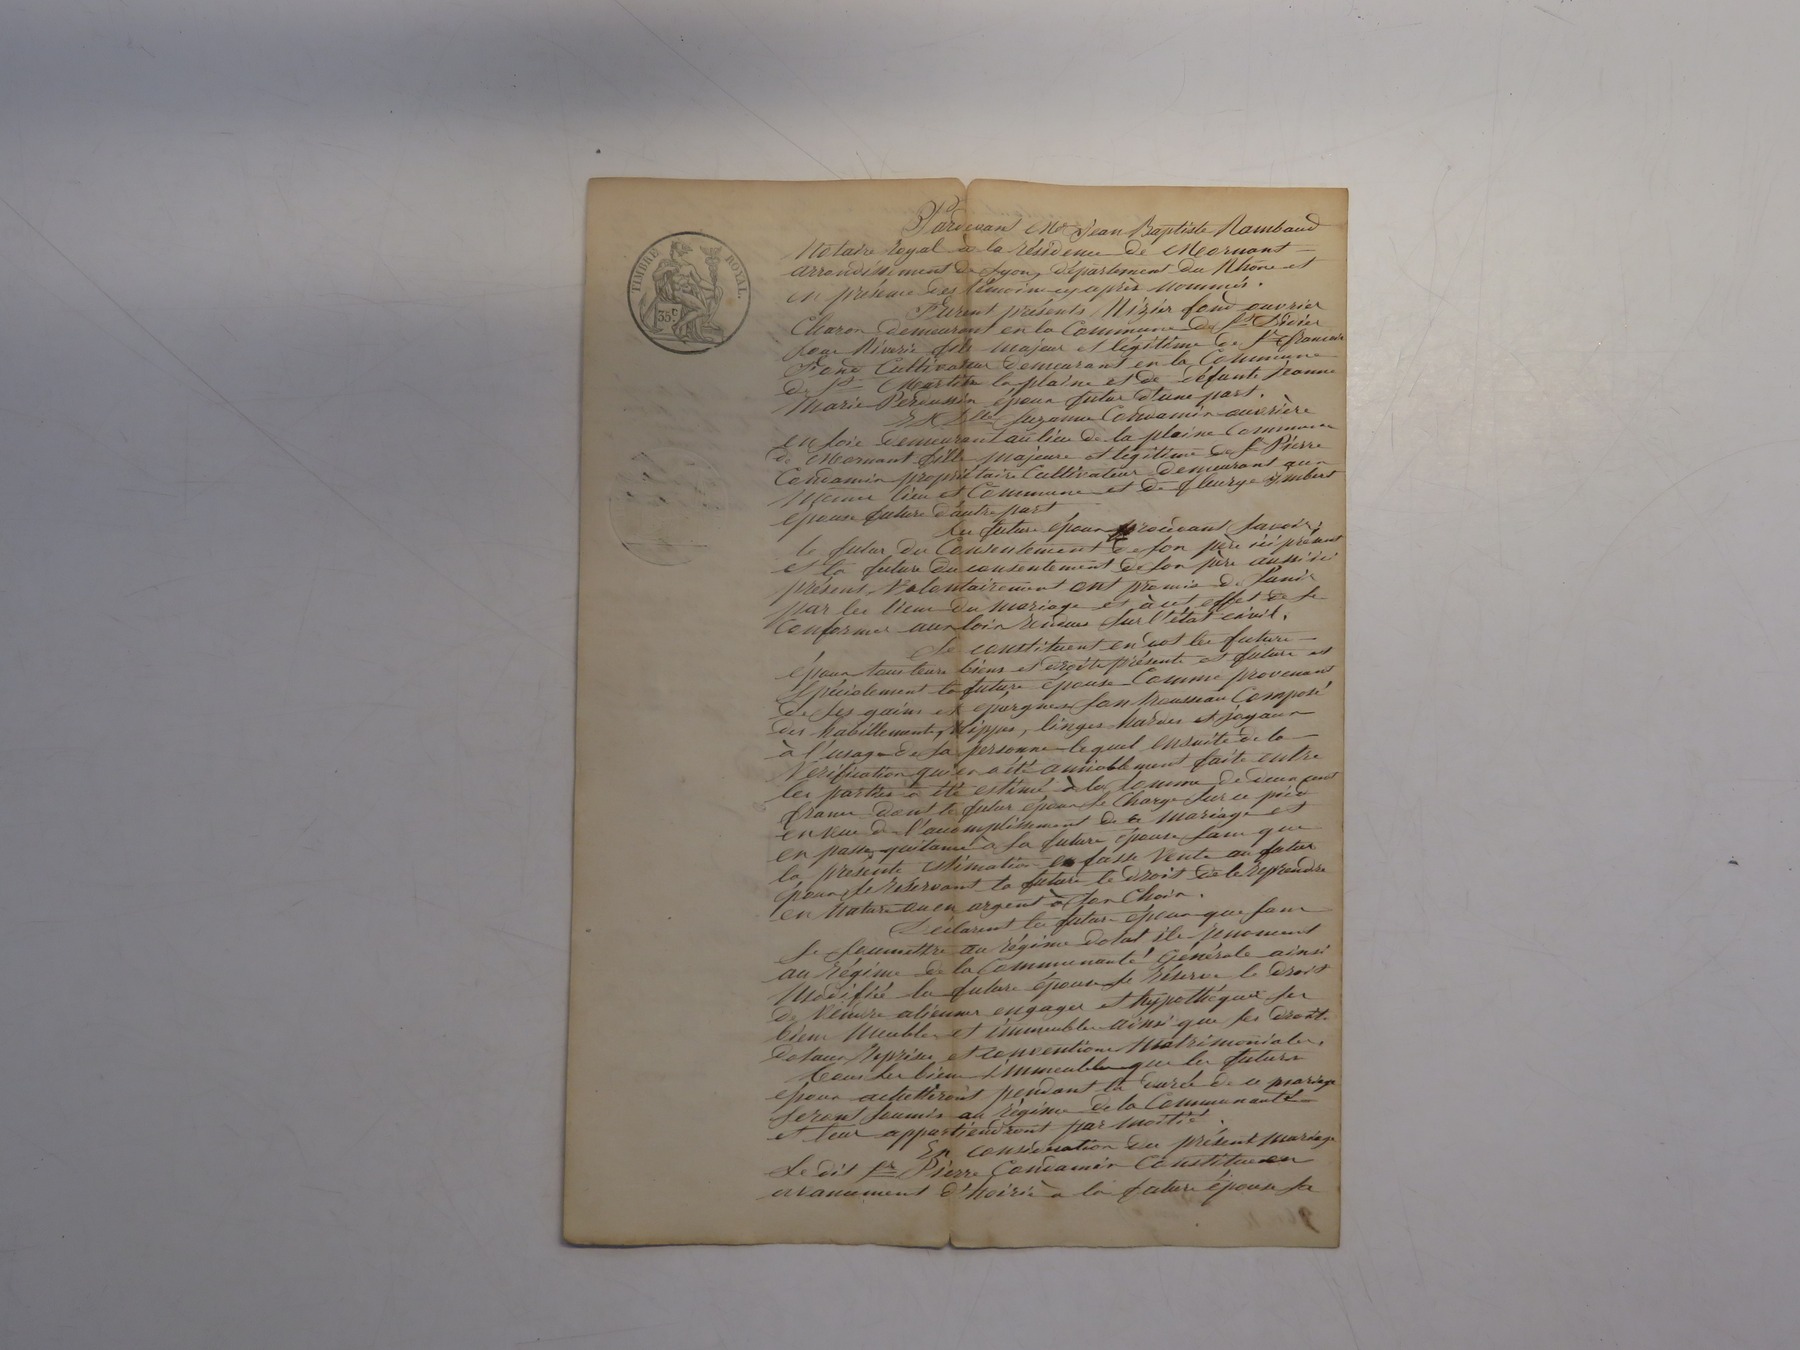 TIMBRE ROYAL.
35c
Pardevant Me Jean Baptiste Rambaud
Notaire royal à la résidence de Mornant
arrondissement de Lyon, département du Rhône et
en présence des témoins cy après nommés.
Furent présents Nizier fond ouvrier
Charon demeurant en la Commune de St Didier
sous Riverie fils majeur et légitime de Sr françois
Fond Cultivateur demeurant en la Commune
de St Martin la plaine et de défunte Jeanne
Marie Peroussin époux futur d'une part.
Et Dlle Suzanne Condamin ouvrière
en soie demeurant au lieu de la plaine Commune
de Mornant fille majeure et légitime de Sr Pierre
Condamin propriétaire Cultivateur demeurant aux
Mêmes lieu et Commune et de fleurye Imbert
épouse future d'autre part
Les futurs époux procédant savoir:
le futur du Consentement de son père ici présent
et la future du consentement de son père aussi ici
présent, Volontairement ont promis de s'unir
par les liens du mariage et à cet effet de se
Conformer aux loix rendues sur l'état civil.
Se constituent en dot les futurs
époux tous leurs biens et droits présents et futurs et
spécialement la future épouse Comme provenant
de ses gains et épargnes son trousseau Composé
des habillements, Nippes, linges hardes et joyaux
à l'usage de sa personne lequel ensuite de la
Vérification qui en a été amiablement faite entre
les parties a été estimé à la somme de deux cent
francs dont le futur époux se charge sur ce pied
en vue de l'accomplissement de ce mariage et
en passe quittance à sa future épouse sans que
la présente estimation en fasse Vente au futur
époux, se réservant la future le droit de le reprendre
en Nature ou en argent à son Choix.
Déclarent les futurs époux que sans
se soumettre au régime dotal ils renoncent
au régime de la Communauté Générale ainsi
Modifié la future épouse se réserve le droit
de Vendre aliéner engager et hypothéquer ses
biens Meubles et immeubles ainsi que ses droits
dotaux Reprises et conventions Matrimoniales.
Tous les biens immeubles que les futurs
époux achetteront pendant la durée de ce mariage
seront soumis au régime de la Communauté
et leur appartiendront par moitié.
En considération du présent mariage
Le dit Sr Pierre Condamin Constitue en
avancement d'hoirie à la future épouse sa